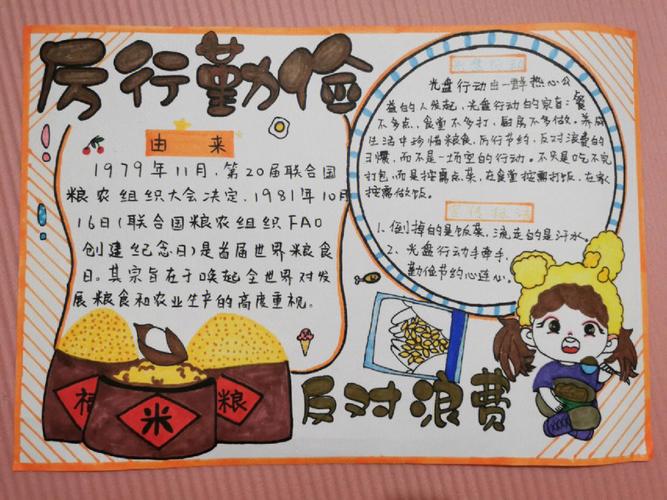 厉行勤俭
由来
1979年11月,第20届联合国
粮农组织大会决定,1981年10月
16日(联合国粮农组织FAO
创建纪念日)是首届世界粮食
日。其宗旨在于唤起全世界对发
展粮食和农业生产的高度重视。
光盘行动由一群热心公
益的人发起,光盘行动的宗旨:餐
不多点,食堂不多打,厨房不多做。养成
生活中珍惜粮食,厉行节约,反对浪费的
习惯,而不是一场空的行动。不只是吃不完
打包,而是按需点菜,在食堂按需打饭,在家
按需做饭。
宣传标语
1、倒掉的是饭菜,流走的是汗水。
2、光盘行动手牵手,
勤俭节约心连心。
米
粮
反对浪费